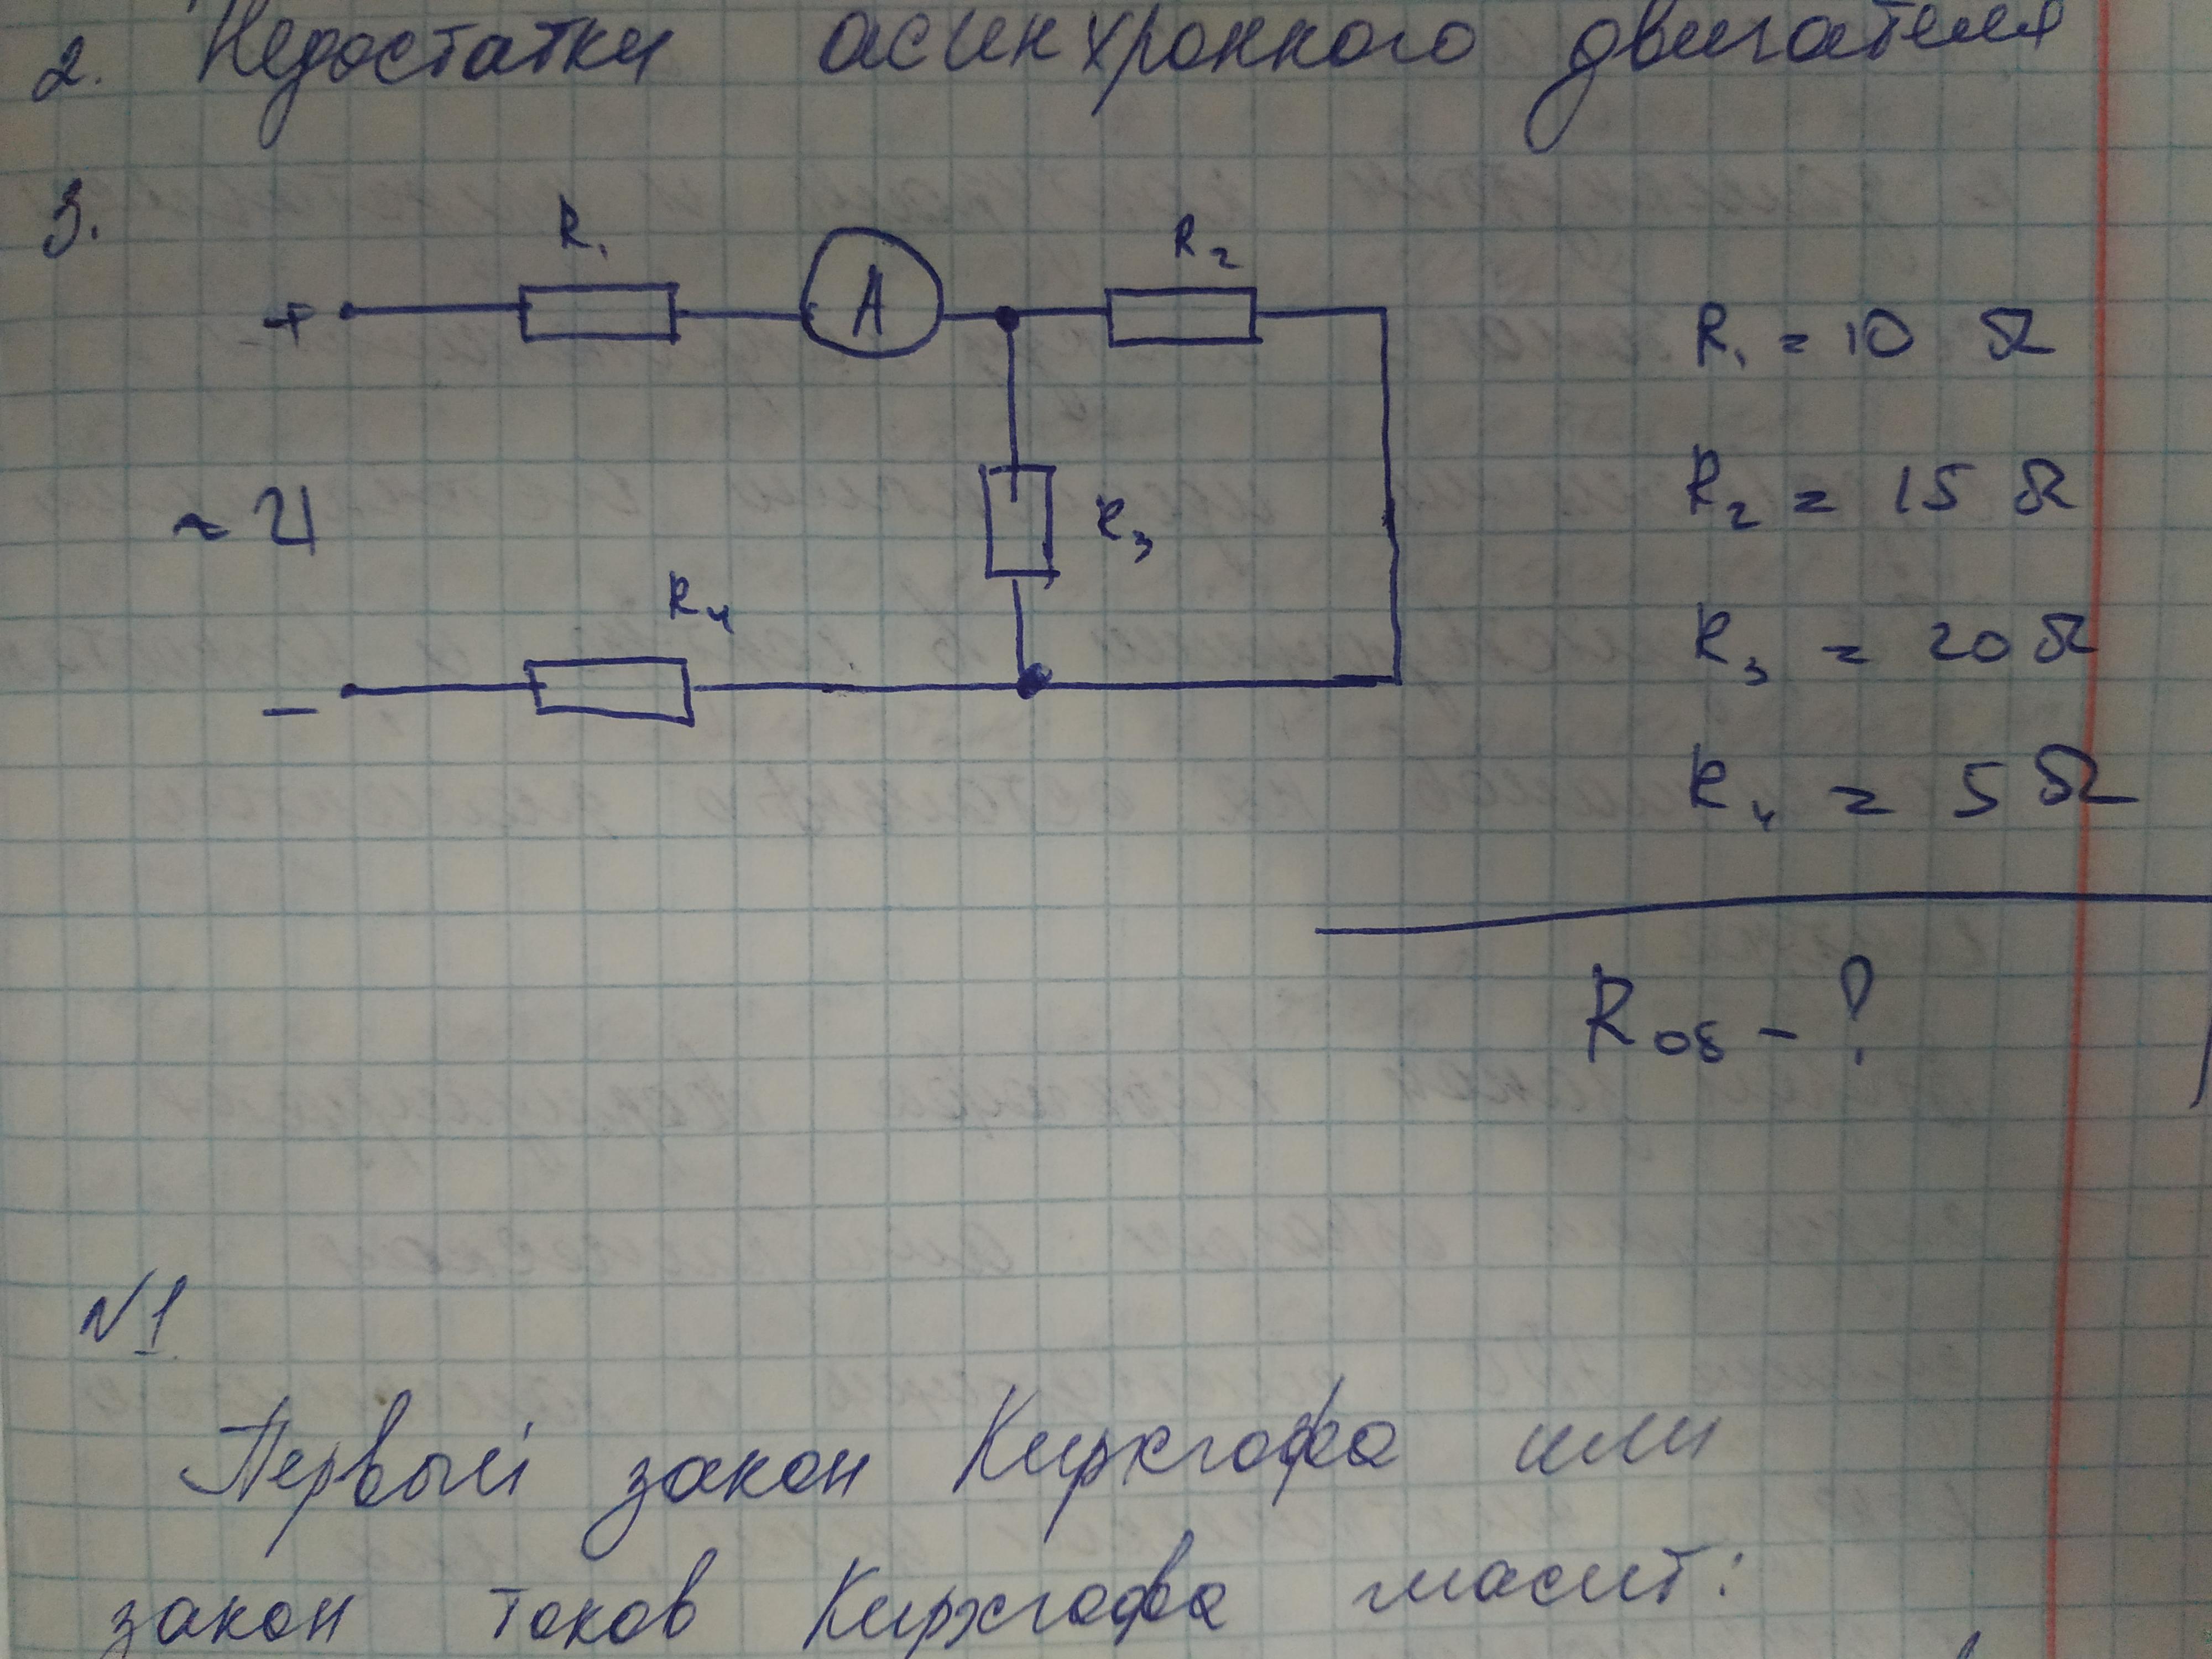 2. Недостатки асинхронного двигателя
3.
R₁
R₂
+
A
R₁ = 10 Ω
~ U
R₃
R₂ = 15 Ω
R₄
R₃ = 20 Ω
–
R₄ = 5 Ω
Rоб - ?
N1
Первый закон Кирхгофа или
закон токов Кирхгофа гласит: